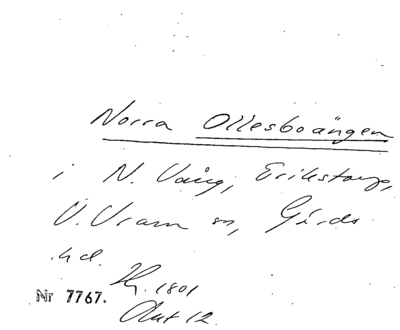 Norra Ollesboängen
i N. Vång, Erikstorp,
V. Vram sn, Gärds
hd.
Hg. 1801
Nr 7767.
Akt 12.